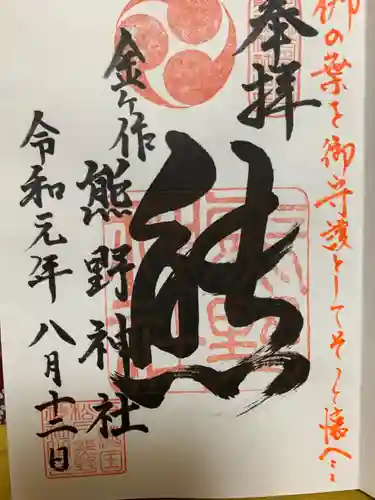 梛の葉を御守護としてそっと懐へ…
奉拝
熊
金ヶ作
熊野神社
令和元年八月十三日